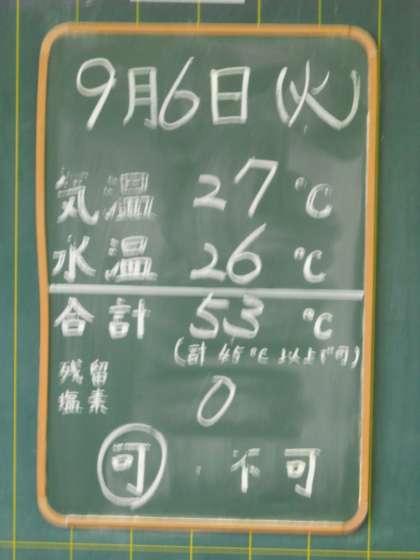 9月6日(火)
気温 27 ℃
水温 26 ℃
合計 53 ℃
(計 45℃ 以上で可)
残留
塩素 0
可 ・ 不可